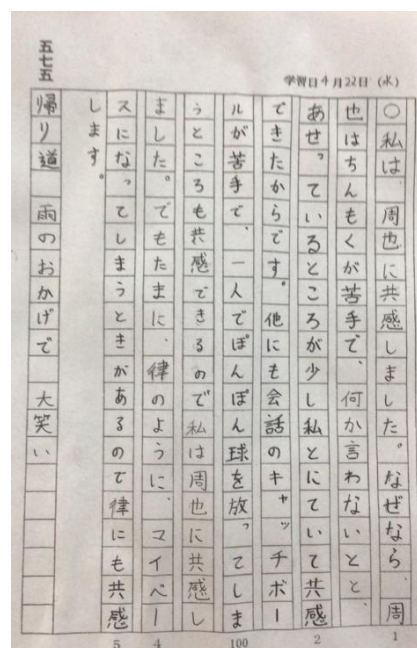 学習日4月22日（水）
○私は、周也に共感しました。なぜなら、周
也はちんもくが苦手で、何か言わないとと、
あせっているところが少し私とにていて共感
できたからです。他にも会話のキャッチボー
ルが苦手で、一人でぽんぽん球を放ってしま
うところも共感できるので私は周也に共感し
ました。でもたまに、律のように、マイペー
スになってしまうときがあるので律にも共感
します。
五七五
帰り道 雨のおかげで 大笑い
1
2
100
4
5